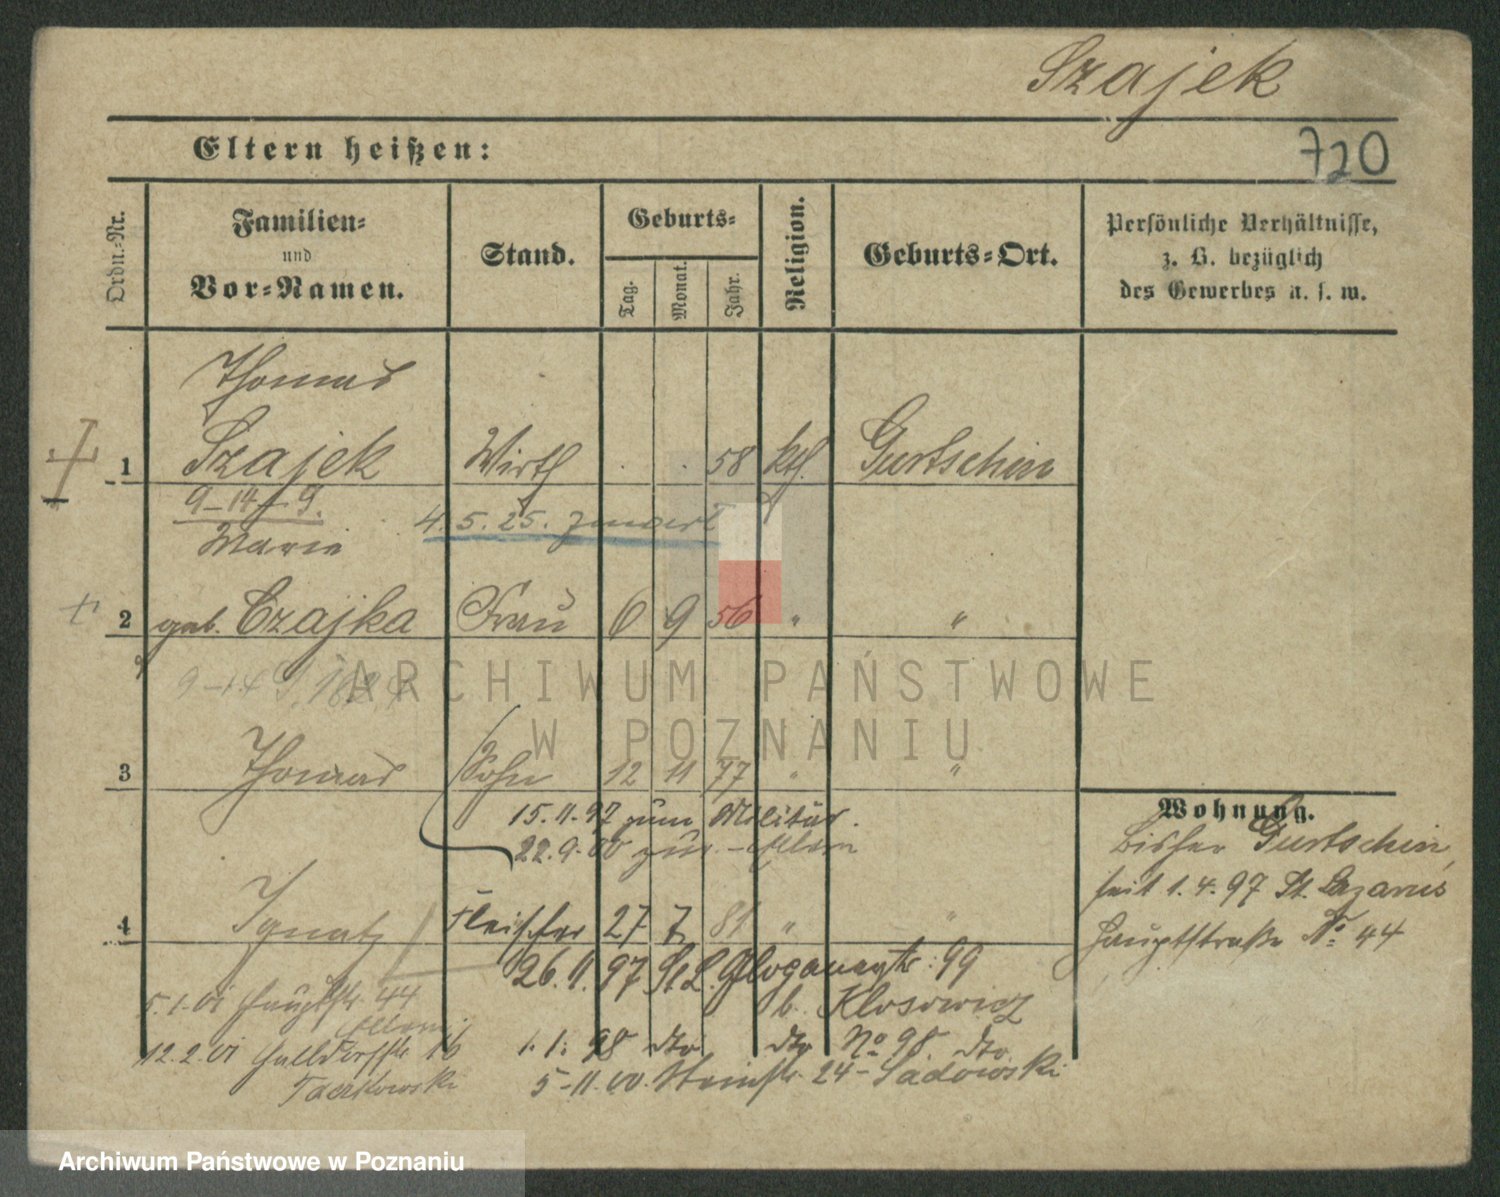 Szajek
720
Eltern heißen:
Ordn.-Nr.
Familien-
und
Vor-Namen.
Stand.
Geburts-
Tag.
Monat.
Jahr.
Religion.
Geburts-Ort.
Persönliche Verhältnisse,
z. B. bezüglich
des Gewerbes u. s. w.
Thomas
1 Szajek Wirth 58 kth. Gurtschin
9-14-9.
4.5.25.
Marie
2 geb. Czajka Frau 6 9 56 " "
ARCHIWUM PAŃSTWOWE
W POZNANIU
3 Thomas Sohn 12 11 77 " "
15.11.97 zum Militär.
22.9.00 zur. Eltern
4 Ignatz Fleischer 27 7 81 " "
26.11.97 St. L. Glogauerstr. 99
b. Klosowicz
1. 1. 98 dto dto No 98. dto.
5-11.00. Steinstr. 24- Sadowski
5.1.01 Hauptstr. 44
Eltern
12.2.01 16
Taczkowski
Wohnung.
bisher Gurtschin,
seit 1.4.97 St. Lazarus
Hauptstraße No 44
Archiwum Państwowe w Poznaniu